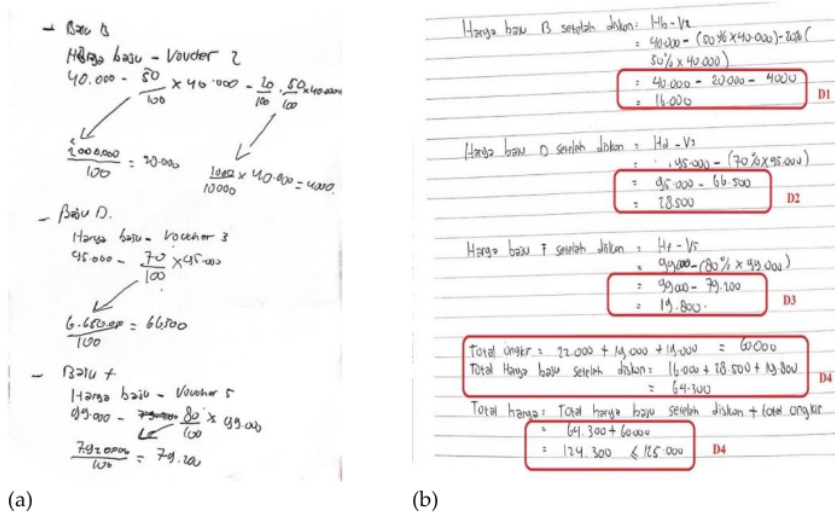 Baju B
Harga baju - Voucher 2
40.000 - 50/100 × 40.000 - 20/100 . 50/100 × 40.000
2000.000/100 = 20.000
1000/10000 × 40.000 = 4000
- Baju D.
Harga baju - Voucher 3
95.000 - 70/100 × 95.000
6.650.00/100 = 66.500
- Baju F
Harga baju - Voucher 5
99.000 - 80/100 × 99.000
7.920.000/100 = 79.200
(a)
Harga baju B setelah diskon : Hb - V2
= 40.000 - (50% × 40.000) - 20% (
50% × 40.000)
= 40.000 - 20.000 - 4000
= 16.000
D1
Harga baju D setelah diskon : Hd - V3
= 95.000 - (70% × 95.000)
= 95.000 - 66.500
= 28.500
D2
Harga baju F setelah diskon : Hf - V5
= 99.000 - (80% × 99.000)
= 99.000 - 79.200
= 19.800.
D3
Total ongkir : 22.000 + 19.000 + 19.000 = 60000
Total Harga baju setelah diskon : 16.000 + 28.500 + 19.800
= 64.300
D4
Total harga : Total harga baju setelah diskon + total ongkir
= 64.300 + 60000
= 124.300 ≤ 125.000
D4
(b)